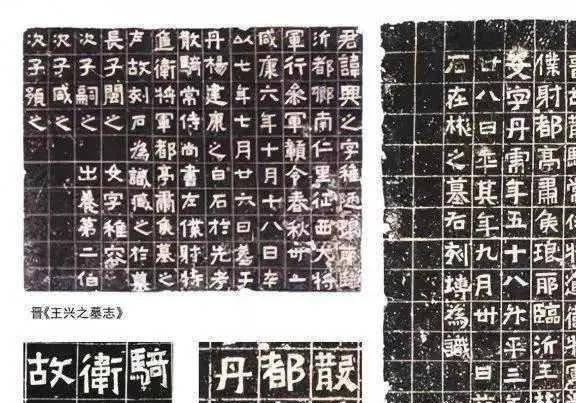 君諱興之字稚陋琅耶臨
沂都鄉南仁里征西大將
軍行參軍贛令春秋卅一
咸康六年十月十八日卒
以七年七月廿六日葬于
丹楊建康之白石於先考
散騎常侍尚書左僕射特
進衛將軍都亭肅侯墓之
左故刻石為識臧之於墓
長子閩之 女字稚容
次子嗣之 出養第二伯
次子咸之
次子預之
晋《王兴之墓志》
僕射都亭肅侯琅耶臨沂王彬
女字丹虎年五十八升平三年
廿八日卒其年九月卅日
石在彬之墓右刻塼為識
騎
衛
故
散
都
丹